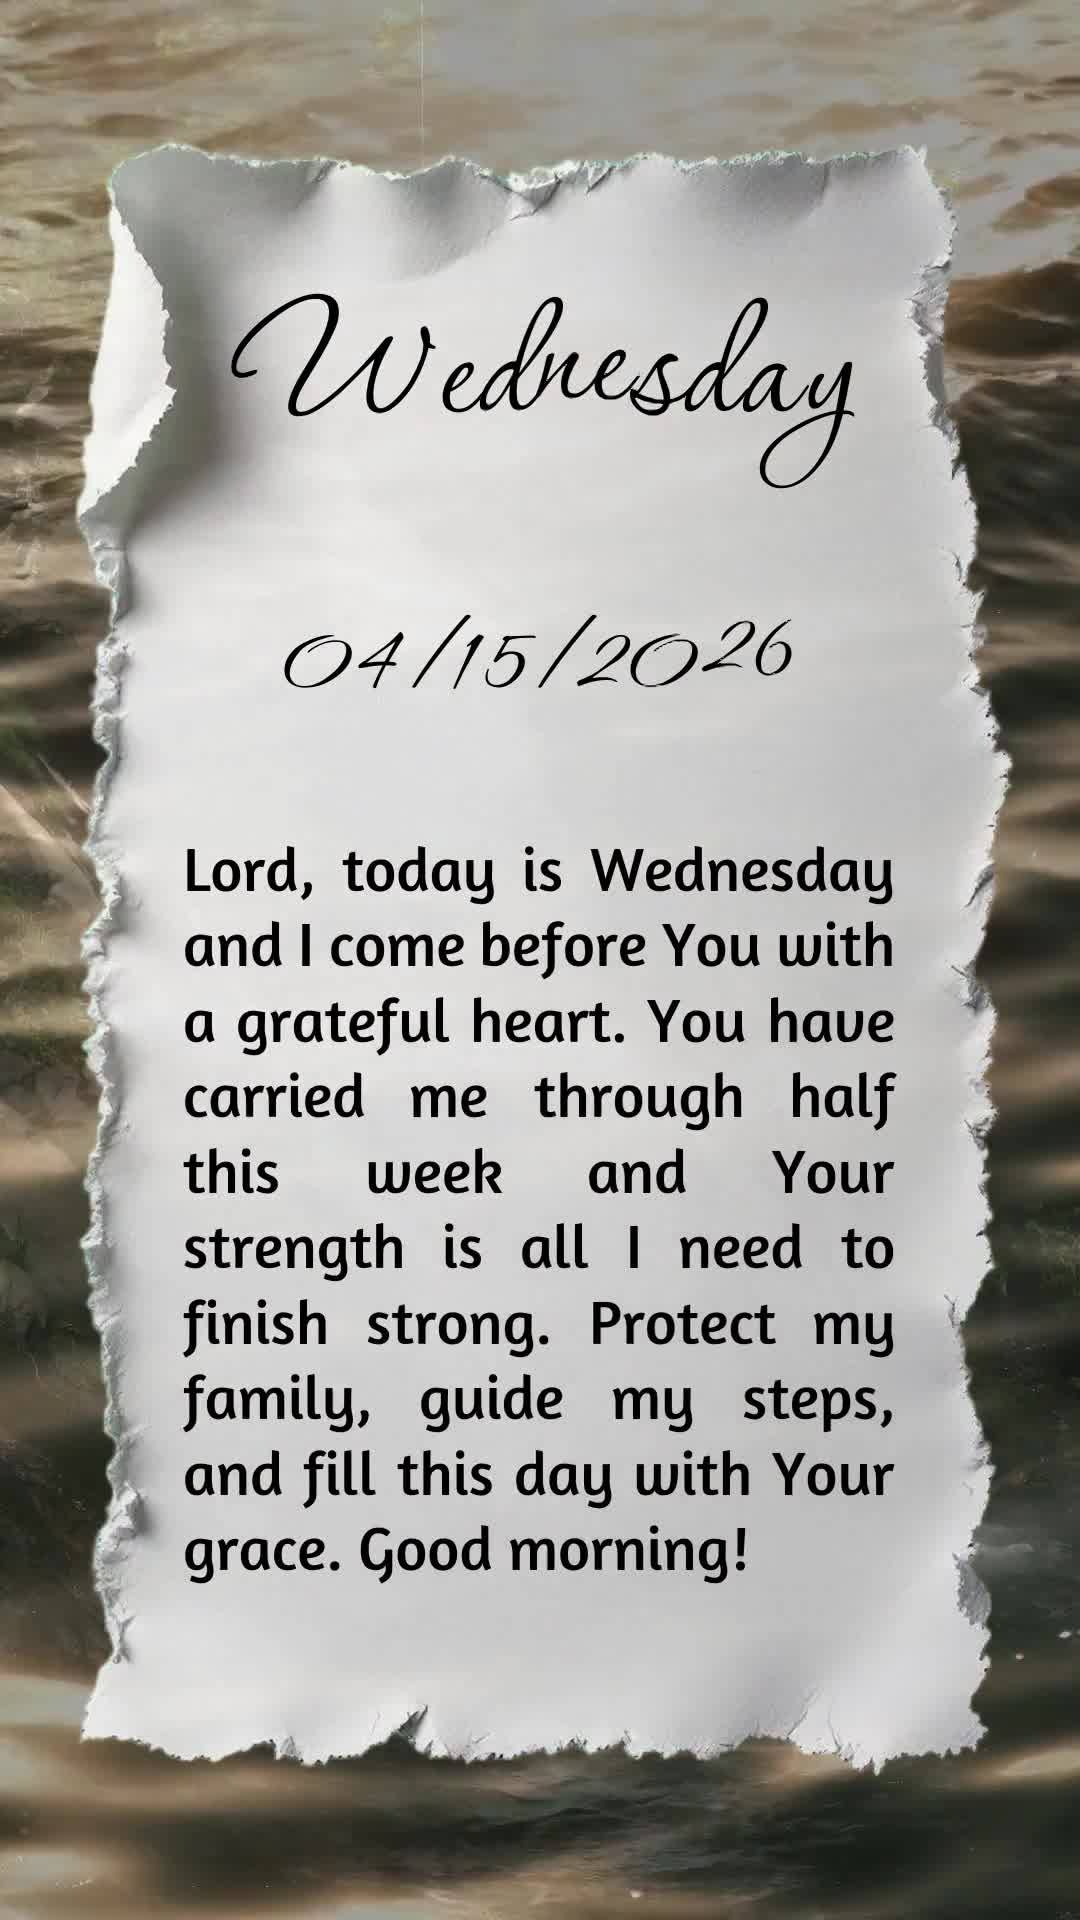 Wednesday
04/15/2026
Lord, today is Wednesday
and I come before You with
a grateful heart. You have
carried me through half
this week and Your
strength is all I need to
finish strong. Protect my
family, guide my steps,
and fill this day with Your
grace. Good morning!